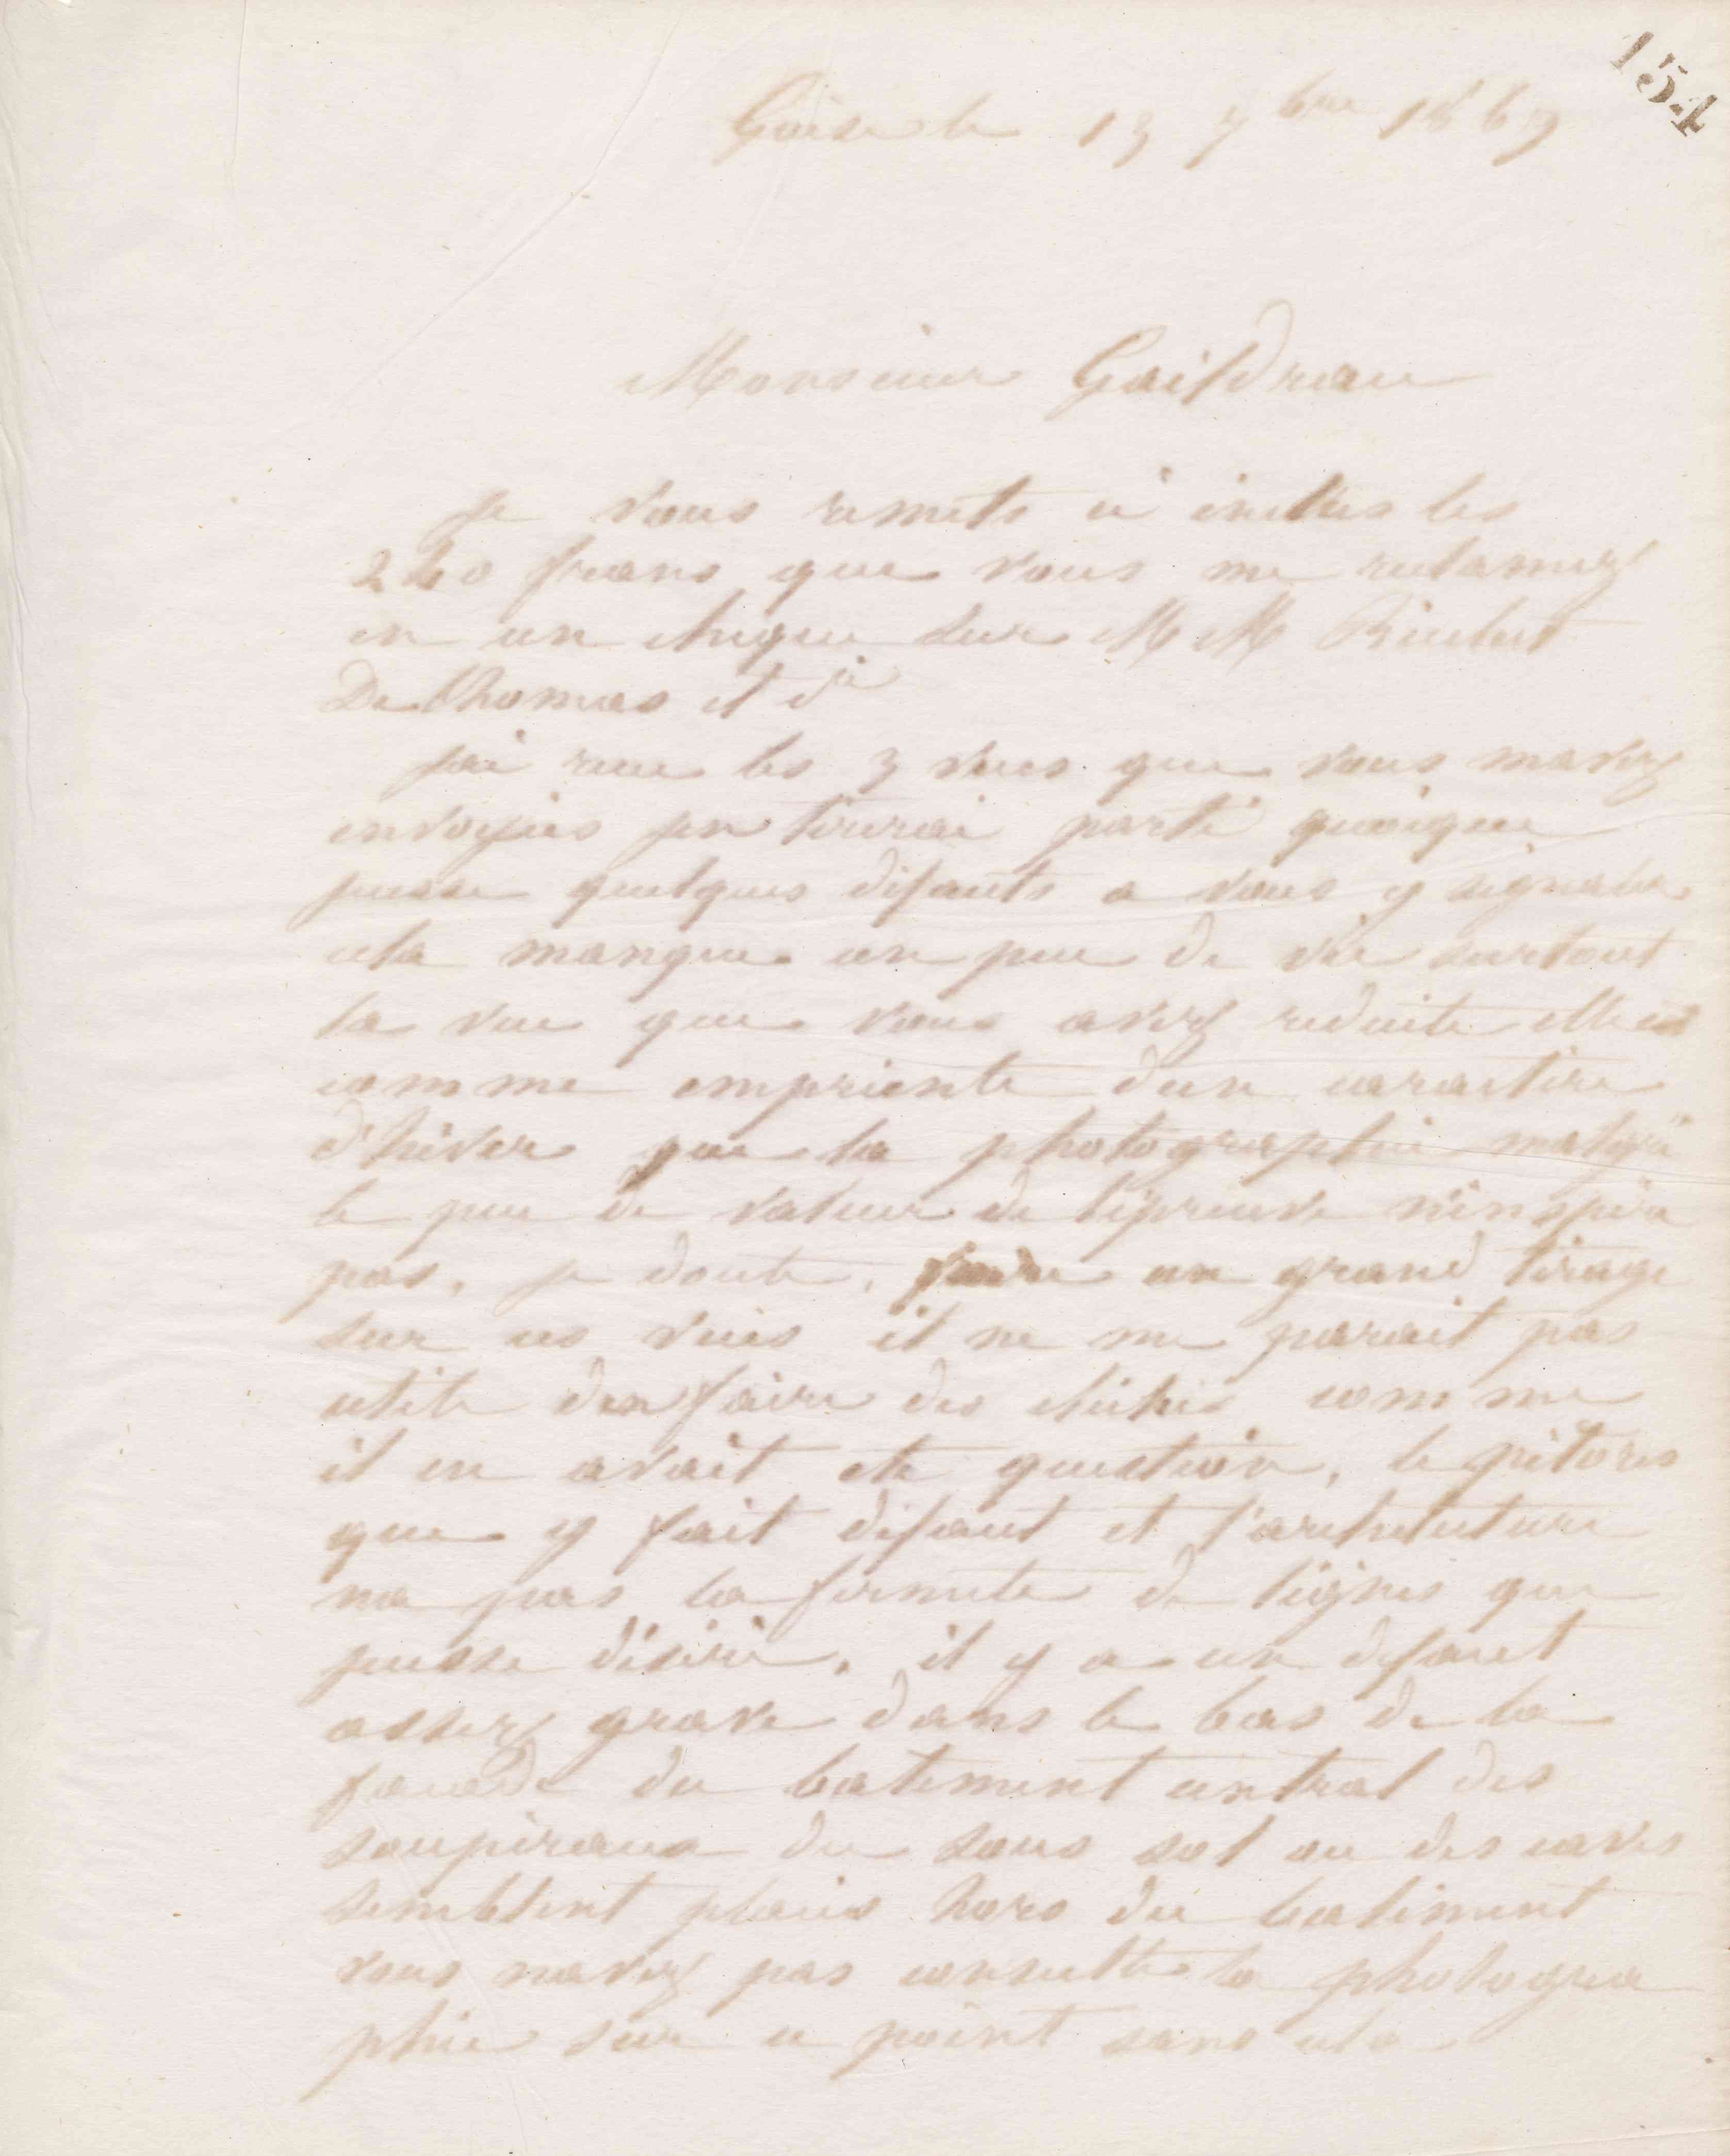 154
Guise le 13 7bre 1869
Monsieur Gaildrau
Je vous remets ci inclus les
240 francs que vous me reclamez
en un cheque sur MM
De Thomas et Cie
jai recu les 3 vues que vous mavez
envoyées jen tirerai parti quoique
jeusse quelques défauts a vous y signaler
cela manque un peu de vie surtout
la vue que vous avez reduite elle est
comme empriente dun caractère
d'hiver que la photographie malgré
le peu de valeur de l'épreuve n'inspire
pas. je doute, un grand tirage
sur ces vues il ne me parait pas
utile den faire des clichés comme
il en avait ete question, le pittores
que y fait défaut et l'architecture
na pas la fermeté de lignes que
jeusse désiré. il y a un defaut
assez grave dans le bas de la
facade du batiment central des
soupiraux du sous sol ou des caves
semblent placés hors du batiment
vous navez pas consulté la photogra
phie sur ce point sans cela